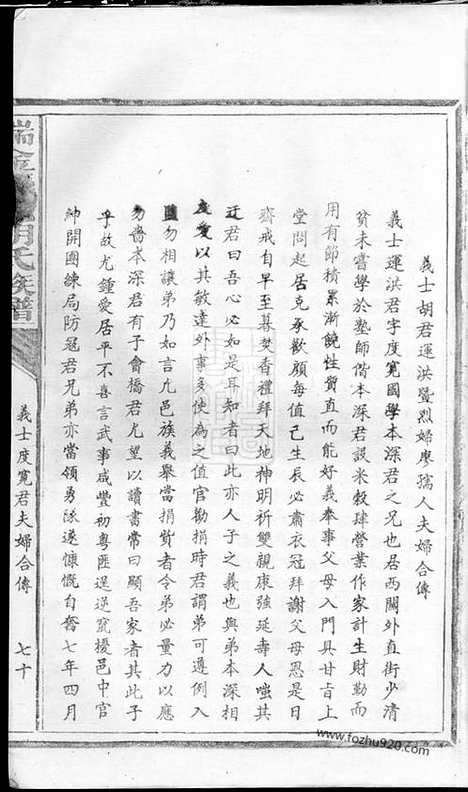 義士胡君運洪暨烈婦廖孺人夫婦合傳
義士運洪君字度寬國學本深君之兄也居西關外直街少清
貧未嘗學於塾師偕本深君設米穀肆營業作家計生財勤而
用有節積累漸饒性質直而能好義奉事父母入門具甘旨上
堂問起居克承歡顏每值己生辰必肅衣冠拜謝父母恩是日
齋戒自早至暮焚香禮拜天地神明祈雙親康強延壽人嗤其
迂君曰吾心必如是耳知者曰此亦人子之義也與弟本深相
友愛以其敏達外事多使為之值官勸捐時君謂弟可遵例入
勿相讓弟乃如言凡邑族義舉當捐貲者令弟必量力以應
勿嗇本深君有子會橋君尤望以讀書常曰顯吾家者其此子
乎故尤鍾愛居平不喜言武事咸豐初粵匪逞逆竄擾邑中官
紳開團練局防寇君兄弟亦當領勇隊遂慷慨自奮七年四月
瑞金 胡氏族譜
義士度寬君夫婦合傳
七十
www.fozhu920.com